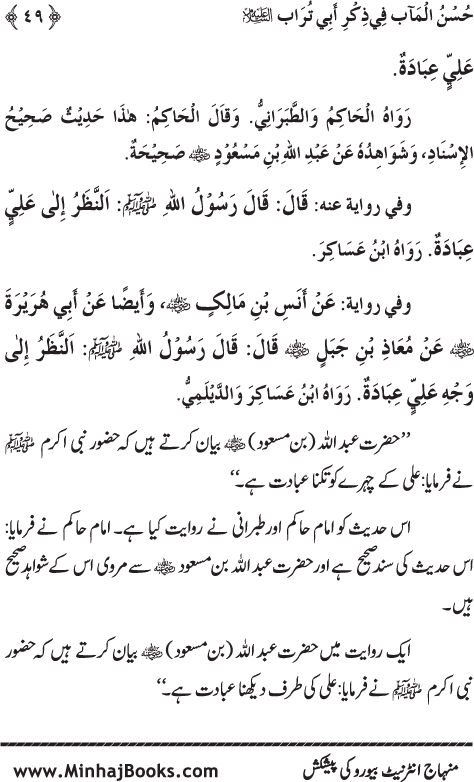 حُسْنُ الْمَآب فِي ذِكْرِ أَبِي تُرَاب علیہ السلام ﴿ ۴۹ ﴾
عَلِيٍّ عِبَادَةٌ.
رَوَاهُ الْحَاكِمُ وَالطَّبَرَانِيُّ. وَقَالَ الْحَاكِمُ: هٰذَا حَدِيْثٌ صَحِيْحُ
الإِسْنَادِ، وَشَوَاهِدُهُ عَنْ عَبْدِ اللهِ بْنِ مَسْعُوْدٍ ؓ صَحِيْحَةٌ.
وفي رواية عنه: قَالَ: قَالَ رَسُوْلُ اللهِ ﷺ: اَلنَّظَرُ إِلٰى عَلِيٍّ
عِبَادَةٌ. رَوَاهُ ابْنُ عَسَاكِرَ.
وفي رواية: عَنْ أَنَسِ بْنِ مَالِكٍ ؓ، وَأَيْضًا عَنْ أَبِي هُرَيْرَةَ
ؓ عَنْ مُعَاذِ بْنِ جَبَلٍ ؓ قَالَ: قَالَ رَسُوْلُ اللهِ ﷺ: اَلنَّظَرُ إِلٰى
وَجْهِ عَلِيٍّ عِبَادَةٌ. رَوَاهُ ابْنُ عَسَاكِرَ وَالدَّيْلَمِيُّ.
’’حضرت عبد اللہ (بن مسعود) ؓ بیان کرتے ہیں کہ حضور نبی اکرم ﷺ
نے فرمایا: علی کے چہرے کو تکنا عبادت ہے۔‘‘
اس حدیث کو امام حاکم اور طبرانی نے روایت کیا ہے۔ امام حاکم نے فرمایا:
اس حدیث کی سند صحیح ہے اور حضرت عبد اللہ بن مسعود ؓ سے مروی اس کے شواہد صحیح
ہیں۔
ایک روایت میں حضرت عبد اللہ (بن مسعود) ؓ بیان کرتے ہیں کہ حضور
نبی اکرم ﷺ نے فرمایا: علی کی طرف دیکھنا عبادت ہے۔‘‘
منہاج انٹرنیٹ بیورو کی پیشکش www.MinhajBooks.com